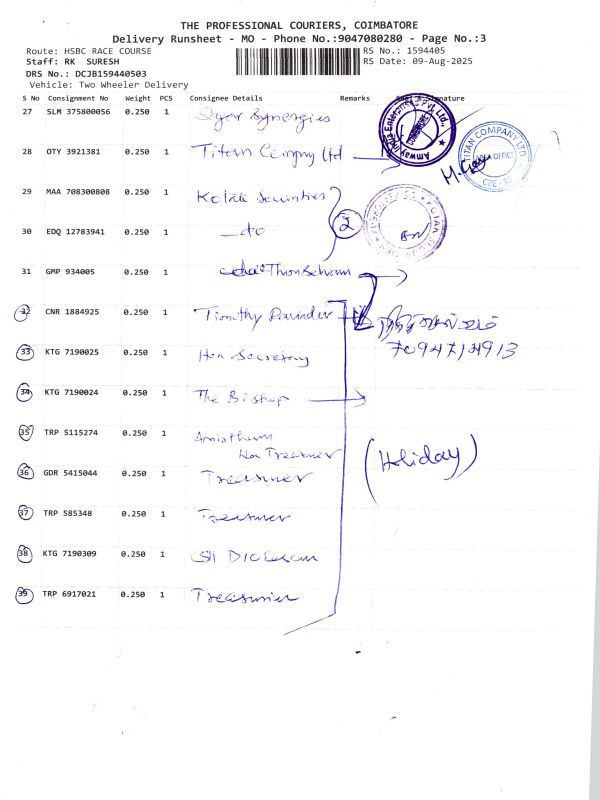 THE PROFESSIONAL COURIERS, COIMBATORE
Delivery Runsheet - MO - Phone No.:9047080280 - Page No.:3
Route: HSBC RACE COURSE
RS No.: 1594405
Staff: RK SURESH
RS Date: 09-Aug-2025
DRS No.: DCJB159440503
Vehicle: Two Wheeler Delivery
S No Consignment No Weight PCS Consignee Details Remarks Signature
27 SLM 375800056 0.250 1 Synergies
28 OTY 3921381 0.250 1 Titan Company Ltd
TITAN COMPANY LTD
29 MAA 708300808 0.250 1 Kotak Securities
2
30 EDQ 12783941 0.250 1 do
31 GMP 934005 0.250 1
32 CNR 1884925 0.250 1 Timothy Ravinder
33 KTG 7190025 0.250 1 Hon Secretary
34 KTG 7190024 0.250 1 The Bishop
35 TRP 5115274 0.250 1
Hon Treasurer
(Holiday)
36 GDR 5415044 0.250 1 Treasurer
37 TRP 585348 0.250 1 Treasurer
38 KTG 7190309 0.250 1
39 TRP 6917021 0.250 1 Treasurer